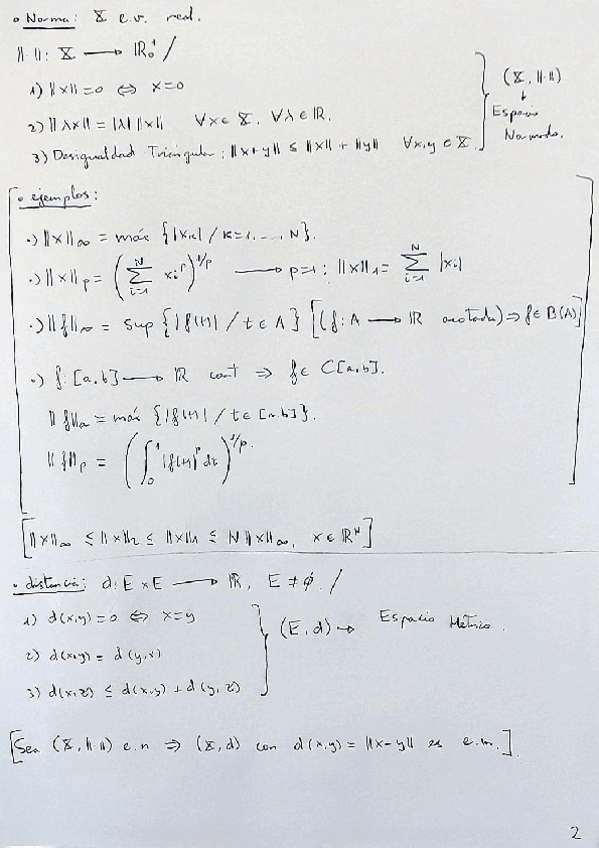 • Norma: X e.v. real.
||·||: X → ℝ₀⁺ /
1) ||x|| = 0 ⇔ x=0
2) ||λx|| = |λ| ||x||   ∀x ∈ X. ∀λ ∈ ℝ.
3) Desigualdad Triangular: ||x+y|| ≤ ||x|| + ||y||   ∀x,y ∈ X.
(X, ||·||)
↓
Espacio
Normado.
• ejemplos:
·) ||x||∞ = máx {|xₖ| / k=1, ..., N}.
·) ||x||ₚ = (∑ᵢ₌₁ᴺ xᵢᵖ)^(1/p) → p=1: ||x||₁ = ∑ᵢ₌₁ᴺ |xᵢ|
·) ||f||∞ = sup {|f(t)| / t ∈ A} [(f: A → ℝ acotada) ⇒ f ∈ B(A)]
·) f: [a,b] → ℝ cont ⇒ f ∈ C[a,b].
||f||∞ = máx {|f(t)| / t ∈ [a,b]}.
||f||ₚ = (∫₀¹ |f(t)|ᵖ dt)^(1/p).
[||x||∞ ≤ ||x||₂ ≤ ||x||₁ ≤ N ||x||∞, x ∈ ℝᴺ]
• distancia: d: E × E → ℝ, E ≠ ∅. /
1) d(x,y) = 0 ⇔ x=y
2) d(x,y) = d(y,x)
3) d(x,z) ≤ d(x,y) + d(y,z)
(E,d) → Espacio Métrico.
[Sea (X, || ||) e.n ⇒ (X,d) con d(x,y) = ||x-y|| es e.m.]
2